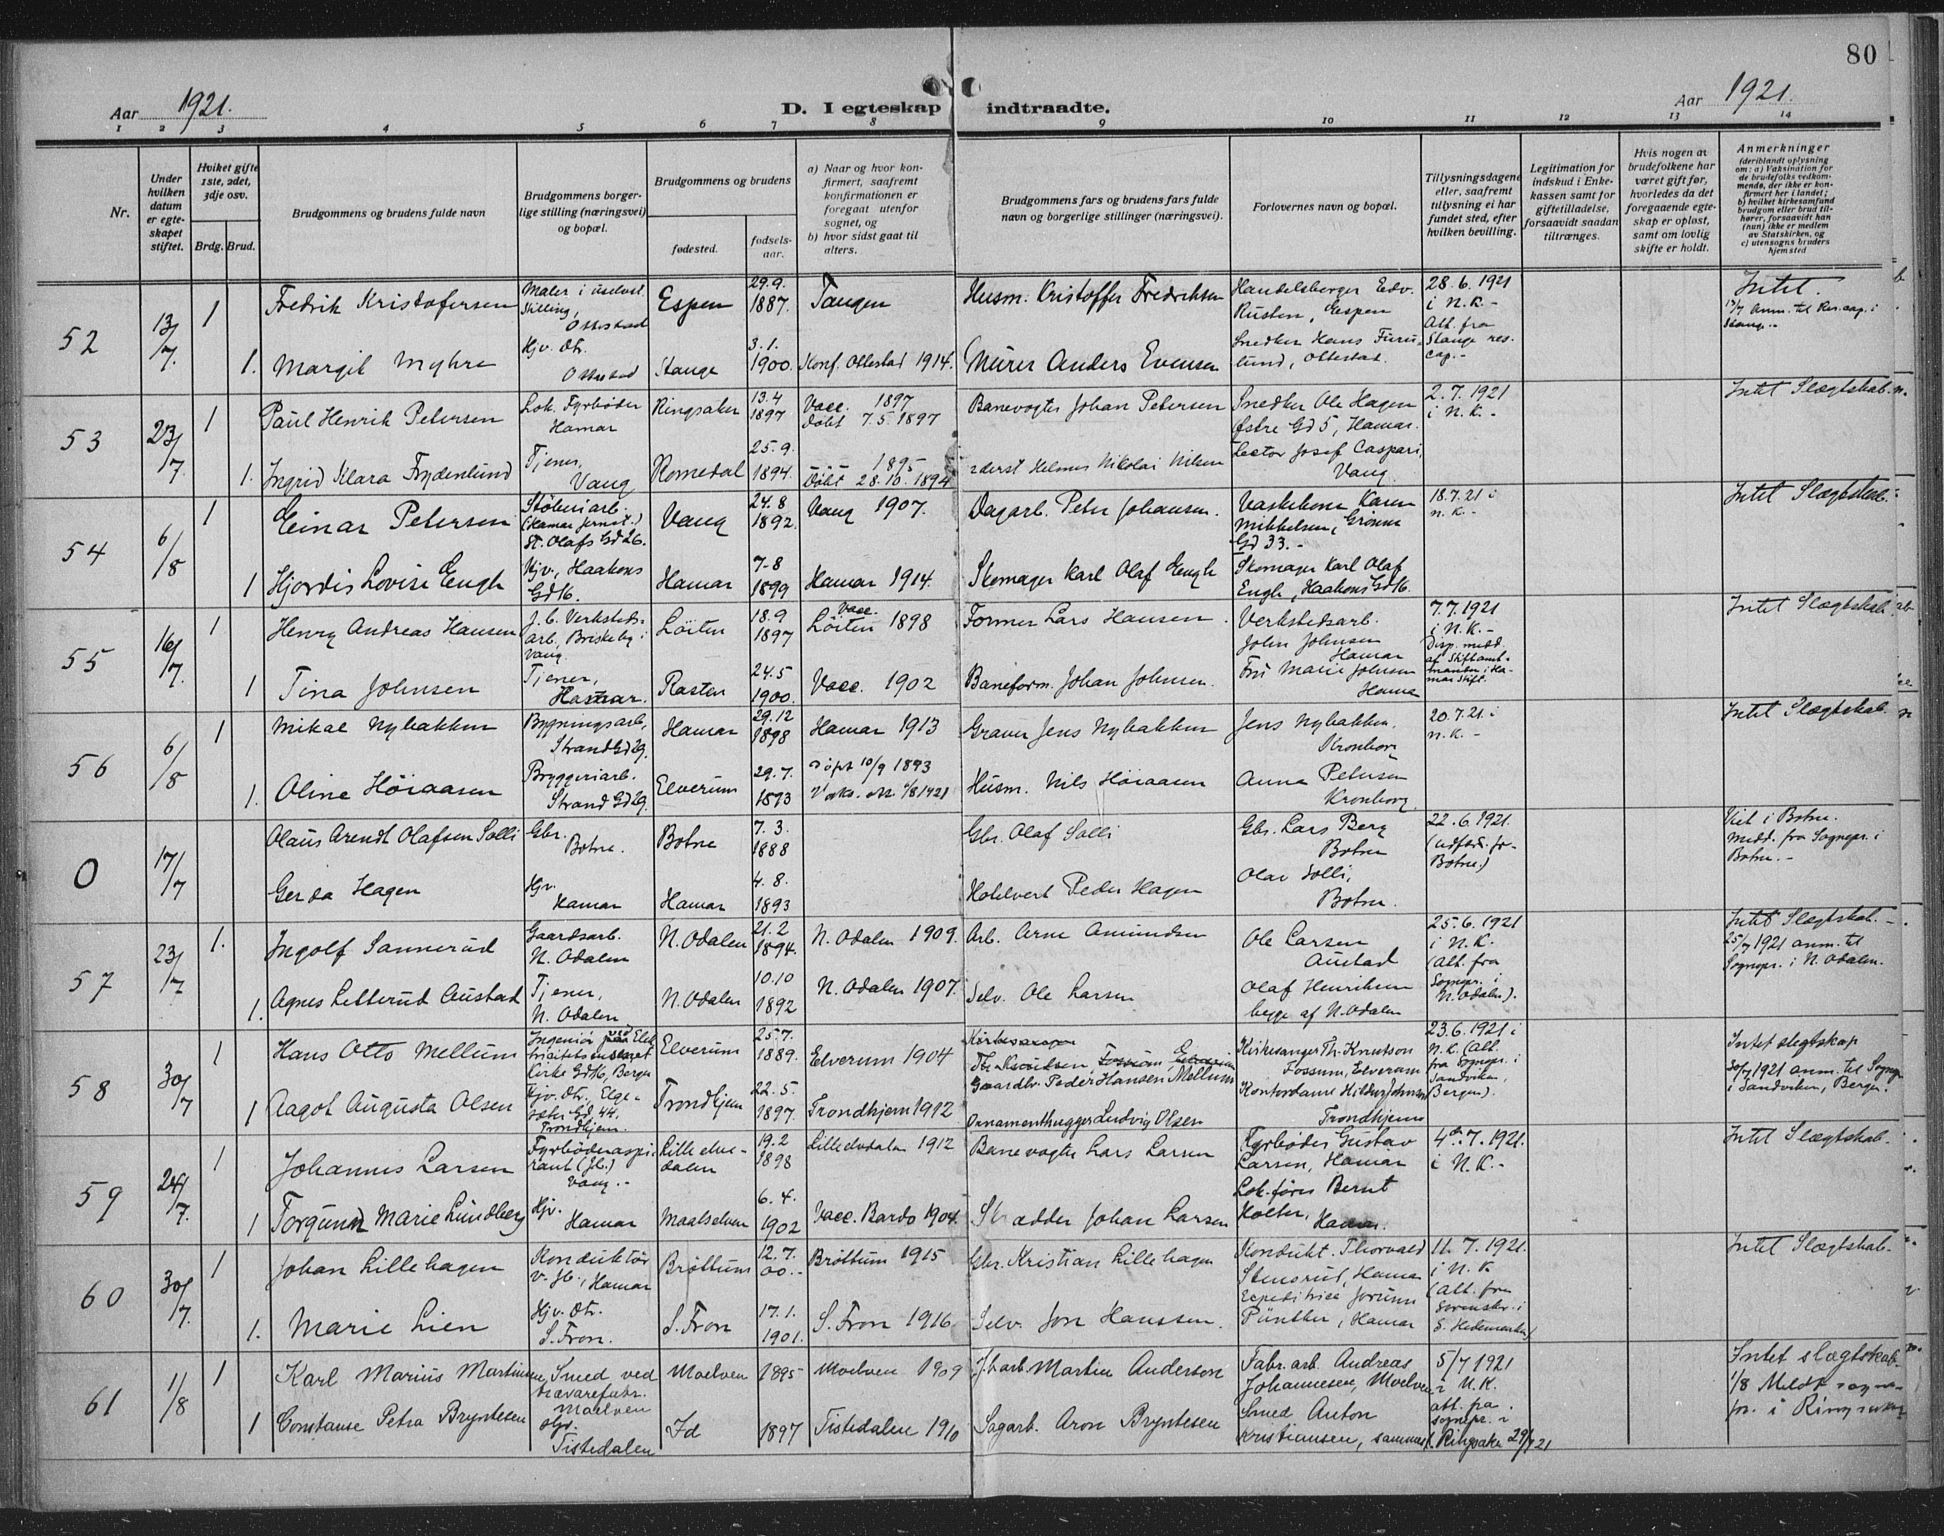 80
Aar 1921.
D. I egteskap indtraadte.
Aar 1921.
1 2 3 4 5 6 7 8 9 10 11 12 13 14
Nr.
Under
hvilken
datum
er egte-
skapet
stiftet.
Hviket gifte
1ste, 2det,
3dje osv.
Brdg. Brud.
Brudgommens og brudens fulde navn
Brudgommens borger-
lige stilling (næringsvei)
og bopæl.
Brudgommens og brudens
fødested.
fødsels-
aar.
a) Naar og hvor kon-
firmert, saafremt
konfirmationen er
foregaat utenfor
sognet, og
b) hvor sidst gaat til
alters.
Brudgommens fars og brudens fars fulde
navn og borgerlige stillinger (næringsvei).
Forlovernes navn og bopæl.
Tillysningsdagene
eller, saafremt
tillysning ei har
fundet sted, efter
hvilken bevilling.
Legitimation for
indskud i Enke-
kassen samt for
giftetilladelse,
forsaavidt saadan
tiltrænges.
Hvis nogen av
brudefolkene har
været gift før,
hvorledes da det
foregaaende egte-
skap er opløst,
samt om lovlig
skifte er holdt.
Anmerkninger
(deriblandt oplysning
om: a) Vaksination for
de brudefolks vedkom-
mende, der ikke er kon-
firmert her i landet;
b) hvilket kirkesamfund
brudgom eller brud til-
hører, forsaavidt han
(hun) ikke er medlem
av Statskirken, og
c) utensogns bruders
hjemsted
52
13/7
1
Fredrik Kristofersen
Maler i uselvst.
Stilling,
Ottestad
Espen
29.9.
1887.
Tangen
Husm. Kristoffer Fredriksen
Handelsberger Edv.
Rusten, Espen
28.6.1921
i N.K.-
Att. fra
Stange res.
cap.-
Intet.
13/7 anm. til Res. cap. i
Stange.-
1.
Margit Myhre
Hjv. dtr.
Ottestad
Stange
3.1.
1900.
Konf. Ottestad 1914.
Murer Anders Evensen
Snedker Hans Furu-
lund, Ottestad.
53
23/7
1
Paul Henrik Petersen
Lok. Fyrbøder
Hamar
Ringsaker
13.4
1897
Vacc. 1897
Døbt 7.5.1897
Banevogter Johan Petersen
Snedker Ole Hagen
Østre Gd 5, Hamar.
2.7.1921
i N.K.-
Intet Slægtskab.
1.
Ingrid Klara Frydenlund
Tjener,
Vang
Romedal
25.9.
1894.
1895
Døbt 28.10.1894
Helmer Nikolai Nilsen
Lector Josef Caspari,
Vang.
54
6/8
1
Einar Petersen
Støberiarb.
(Hamar Jernst.)
St. Olafs Gd 26.
Vang
24.8
1892.
Vang 1907.
Dagarb. Peter Johansen.
Vaskekone Karen
Mikkelsen, Grønne
Gd 33.-
18.7.21 i
N.K.-
Intet Slægtskab.
1
Hjordis Lovise Engh
Hjv., Haakons
Gd 16.
Hamar
7-8
1899
Hamar 1914.
Skomager Karl Olaf Engh
Skomager Karl Olaf
Engh, Haakons Gd 16.
55
16/7
1
Henry Andreas Hansen
J.b. Verksteds-
arb., Briskeby i
Vang.
Løiten
18.9
1897
Vacc.
Løiten 1898
Former Lars Hansen.
Verkstedsarb.
John Johnsen
Hamar
7.7.1921
i N.K.-
Disp. medd.
af Stiftamt-
manden i Ha-
mar Stift.
Intet Slægtskab
1
Tina Johnsen
Tjener,
Hamar.
Rasten
24.5
1900.
Vacc. 1902
Baneform. Johan Johnsen.
Fru Marie Johnsen
Hamar
56
6/8
1
Mikal Nybakken
Bygningsarb,
Strand Gd 29.
Hamar
29.12
1898
Hamar 1913
Graver Jens Nybakken
Jens Nybakken.
Kronborg
20.7.21. i
N.K.-
Intet Slægtskab.
1.
Oline Høiaasen
Bryggeriarb.
Strand Gd 29.
Elverum
29.7.
1893
Døpt 10/9 1893
Husm. Nils Høiaasen
Anna Petersen
Kronborg.
0
17/7
Olaus Arendt Olafsen Solli
Gbr.
Botne.
Botne
7.3.
1888
Gbr. Olaf Solli
Gbr. Lars Berg
Botne
22.6.1921.
(utførd. fr
Botne.)
Viet i Botne.
Medd. fra Sognepr. i
Botne.-
Gerda Hagen
Hjv.
Hamar
Hamar
4.8.
1893
Hotelvert Peder Hagen
Olav Solli,
Botne.
57
23/7
1.
Ingolf Sannerud
Gaardsarb.
N. Odalen
N. Odalen
21.2
1894.
N. Odalen 1909.
Arb. Arne Amundsen
Ole Larsen
Austad
25.6.1921
i N.K.
(Att. fra
Sognepr. i
N. Odalen).
Intet Slægtskab.-
25/7 1921 anm. til
Sognepr. i N. Odalen.
1.
Agnes Letterud Austad
Tjener,
N. Odalen
N. Odalen
10.10
1892
N. Odalen 1907.
Selv. Ole Larsen
Olaf Henriksen
begge af N. Odalen
58
30/7
1
Hans Otto Mellum
Ingeniør ved Elek
tricitetsvesenet
Kirke Gd 16, Bergen
Elverum
25.7.
1889.
Elverum 1904
Kirkesanger
Th. Knutsen, Fossum, Elverum
Gaardbr. Peder Hansen Mellum
Kirkesanger Th. Knutson
Fossum, Elverum
23.6.1921 i
N.K. (Att
fra Sognepr. i
Sandviken,
Bergen).
Intet slegtskap
30/7 1921 anm. til Sogne
i Sandviken, Bergen.
1
Aagot Augusta Olsen
Hjv. dtr., Elge-
sæter Gd. 44.
Trondhjem.
Trondhjem
22.5.
1897.
Trondhjem 1912
Ornamenthugger Ludvig Olsen
Kontordame Hildur Johnsen
Trondhjem
59
24/7.
1
Johannes Larsen
Fyrbøderaspi-
rant (Jb.)
Vang.-
Lille elve-
dalen
19.2
1898
Lilleelvdalen 1912
Banevogter Lars Larsen
Fyrbøder Gustav
Larsen, Hamar
4de.7.1921.
i N.K.-
Intet Slægtskab.
1
Torgunn Marie Lundberg
Hjv.
Hamar
Maalselven
6.4.
1902
Vacc. Bardo 1904.
Skrædder Johan Larsen
Lok. fører Bernt
Holter, Hamar.
60
30/7.
1
Johan Lillehagen
Konduktør
v. Jb., Hamar
Brøttum
12.7.
00.-
Brøttum 1915
Gbr. Kristian Lillehagen
Kondukt. Thorvald
Stensrud, Hamar
11.7.1921.
i N.K.
(Att. fra
Sorenskr. i
S. Hedemarken)
Intet Slægtskab.
1.
Marie Lien
Hjv. dtr.
S. Fron.
S. Fron
17.1.
1901.
S. Fron 1916
Selv. Jon Hanssen.
Expeditrice Jorunn
Püntter, Hamar
61
1/8
1
Karl Marius Martinsen
Smed ved
trævarefabr.
Moelven
Moelven
1895
Moelven 1909
Jb arb. Martin Anderson
Fabr. arb. Andreas
Johannesen, Moelven
5/7 1921
i N.K.
att. fra
sognepr. i
Ringsaker 29/7 21
Intet slægtskab.
1/8 Meldt sogne-
pr. i Ringsaker
1
Constanse Petra Bryntesen
Hjv.
Tistedalen
Id
1897
Tistedalen 1910
Sagarb. Aron Bryntesen
Smed Anton
Kristiansen, sammest.